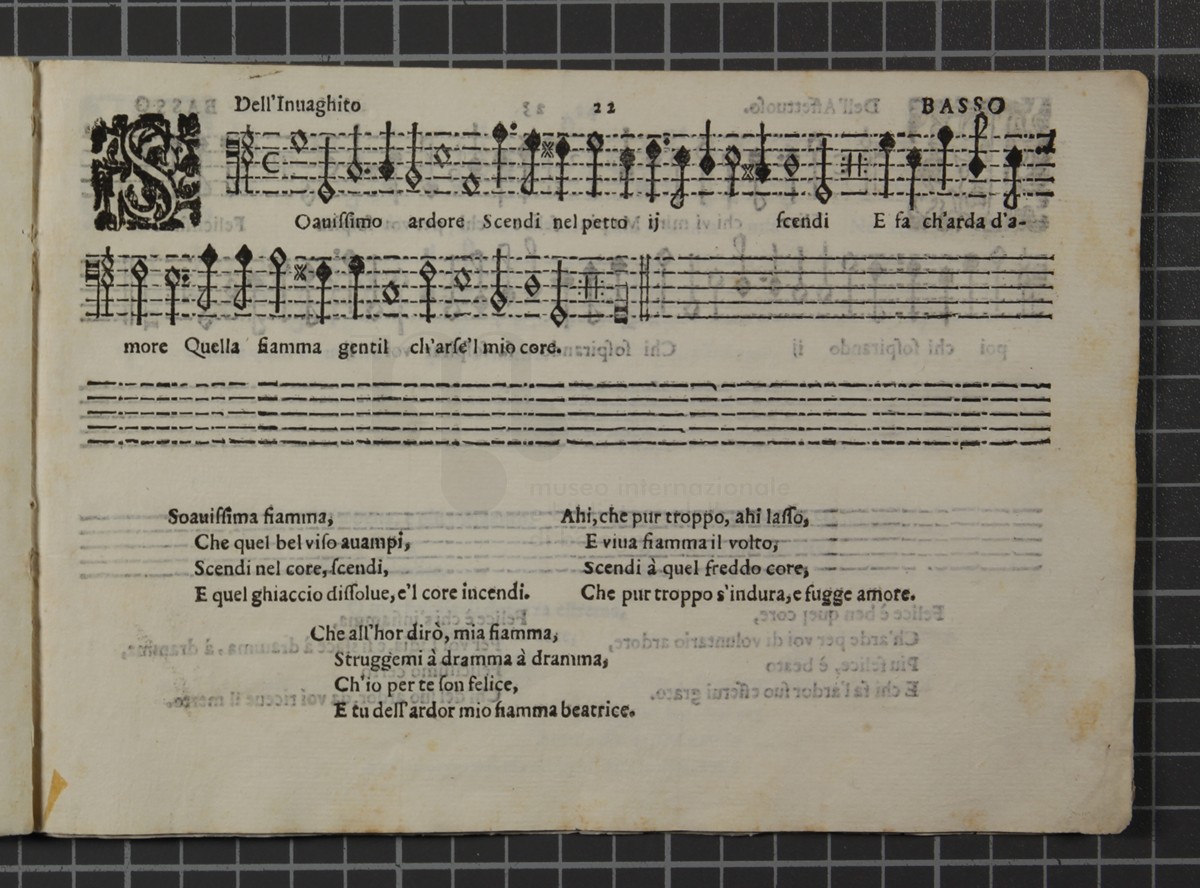 Dell'Inuaghito 22 BASSO
SOauiſſimo ardore Scendi nel petto ij ſcendi E fa ch'arda d'a-
more Quella fiamma gentil ch'arſe'l mio core.
museo internazionale
Soauiſſima fiamma,
Che quel bel viſo auampi,
Scendi nel core, ſcendi,
E quel ghiaccio diſſolue, e'l core incendi.
Ahi, che pur troppo, ahi laſſo,
E viua fiamma il volto,
Scendi à quel freddo core,
Che pur troppo s'indura, e fugge amore.
Che all'hor dirò, mia fiamma,
Struggemi à dramma à dramma,
Ch'io per te ſon felice,
E tu dell'ardor mio fiamma beatrice.